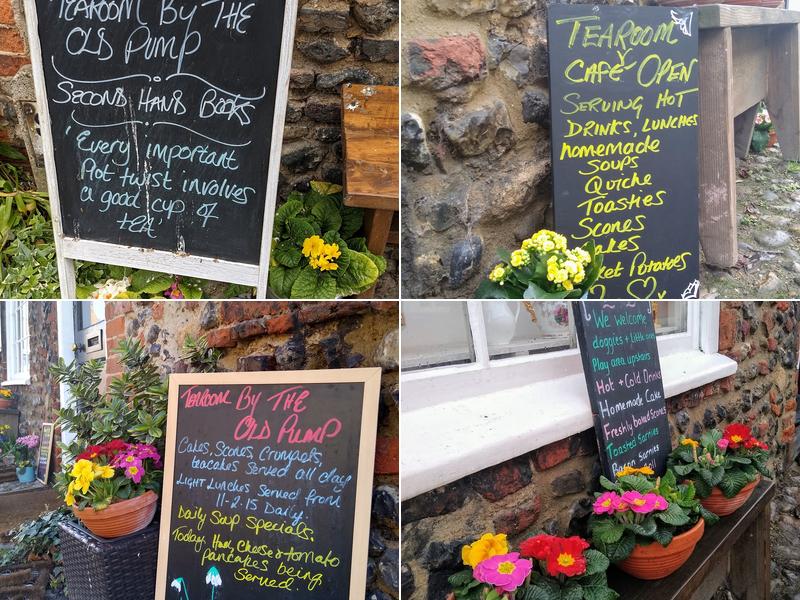 TEAROOM BY THE
OLD PUMP
SECOND HAND BOOKS
'Every important
Plot twist involves
a good cup of
tea'
TEAROOM
CAFE OPEN
SERVING HOT
DRINKS, LUNCHES
homemade
SOUPS
QUICHE
TOASTIES
SCONES
CAKES
Jacket Potatoes
TEAROOM BY THE
OLD PUMP
Cakes, Scones, Crumpets,
teacakes Served all day
LIGHT Lunches Served from
11-2.15 Daily.
Daily Soup Specials.
Today. Ham, Cheese + tomato
pancakes being
Served.
We Welcome
doggies + Little ones
Play area upstairs
Hot + Cold Drinks
Homemade Cake
Freshly baked Scones
Toasted Sarnies
Bacon Sarnies